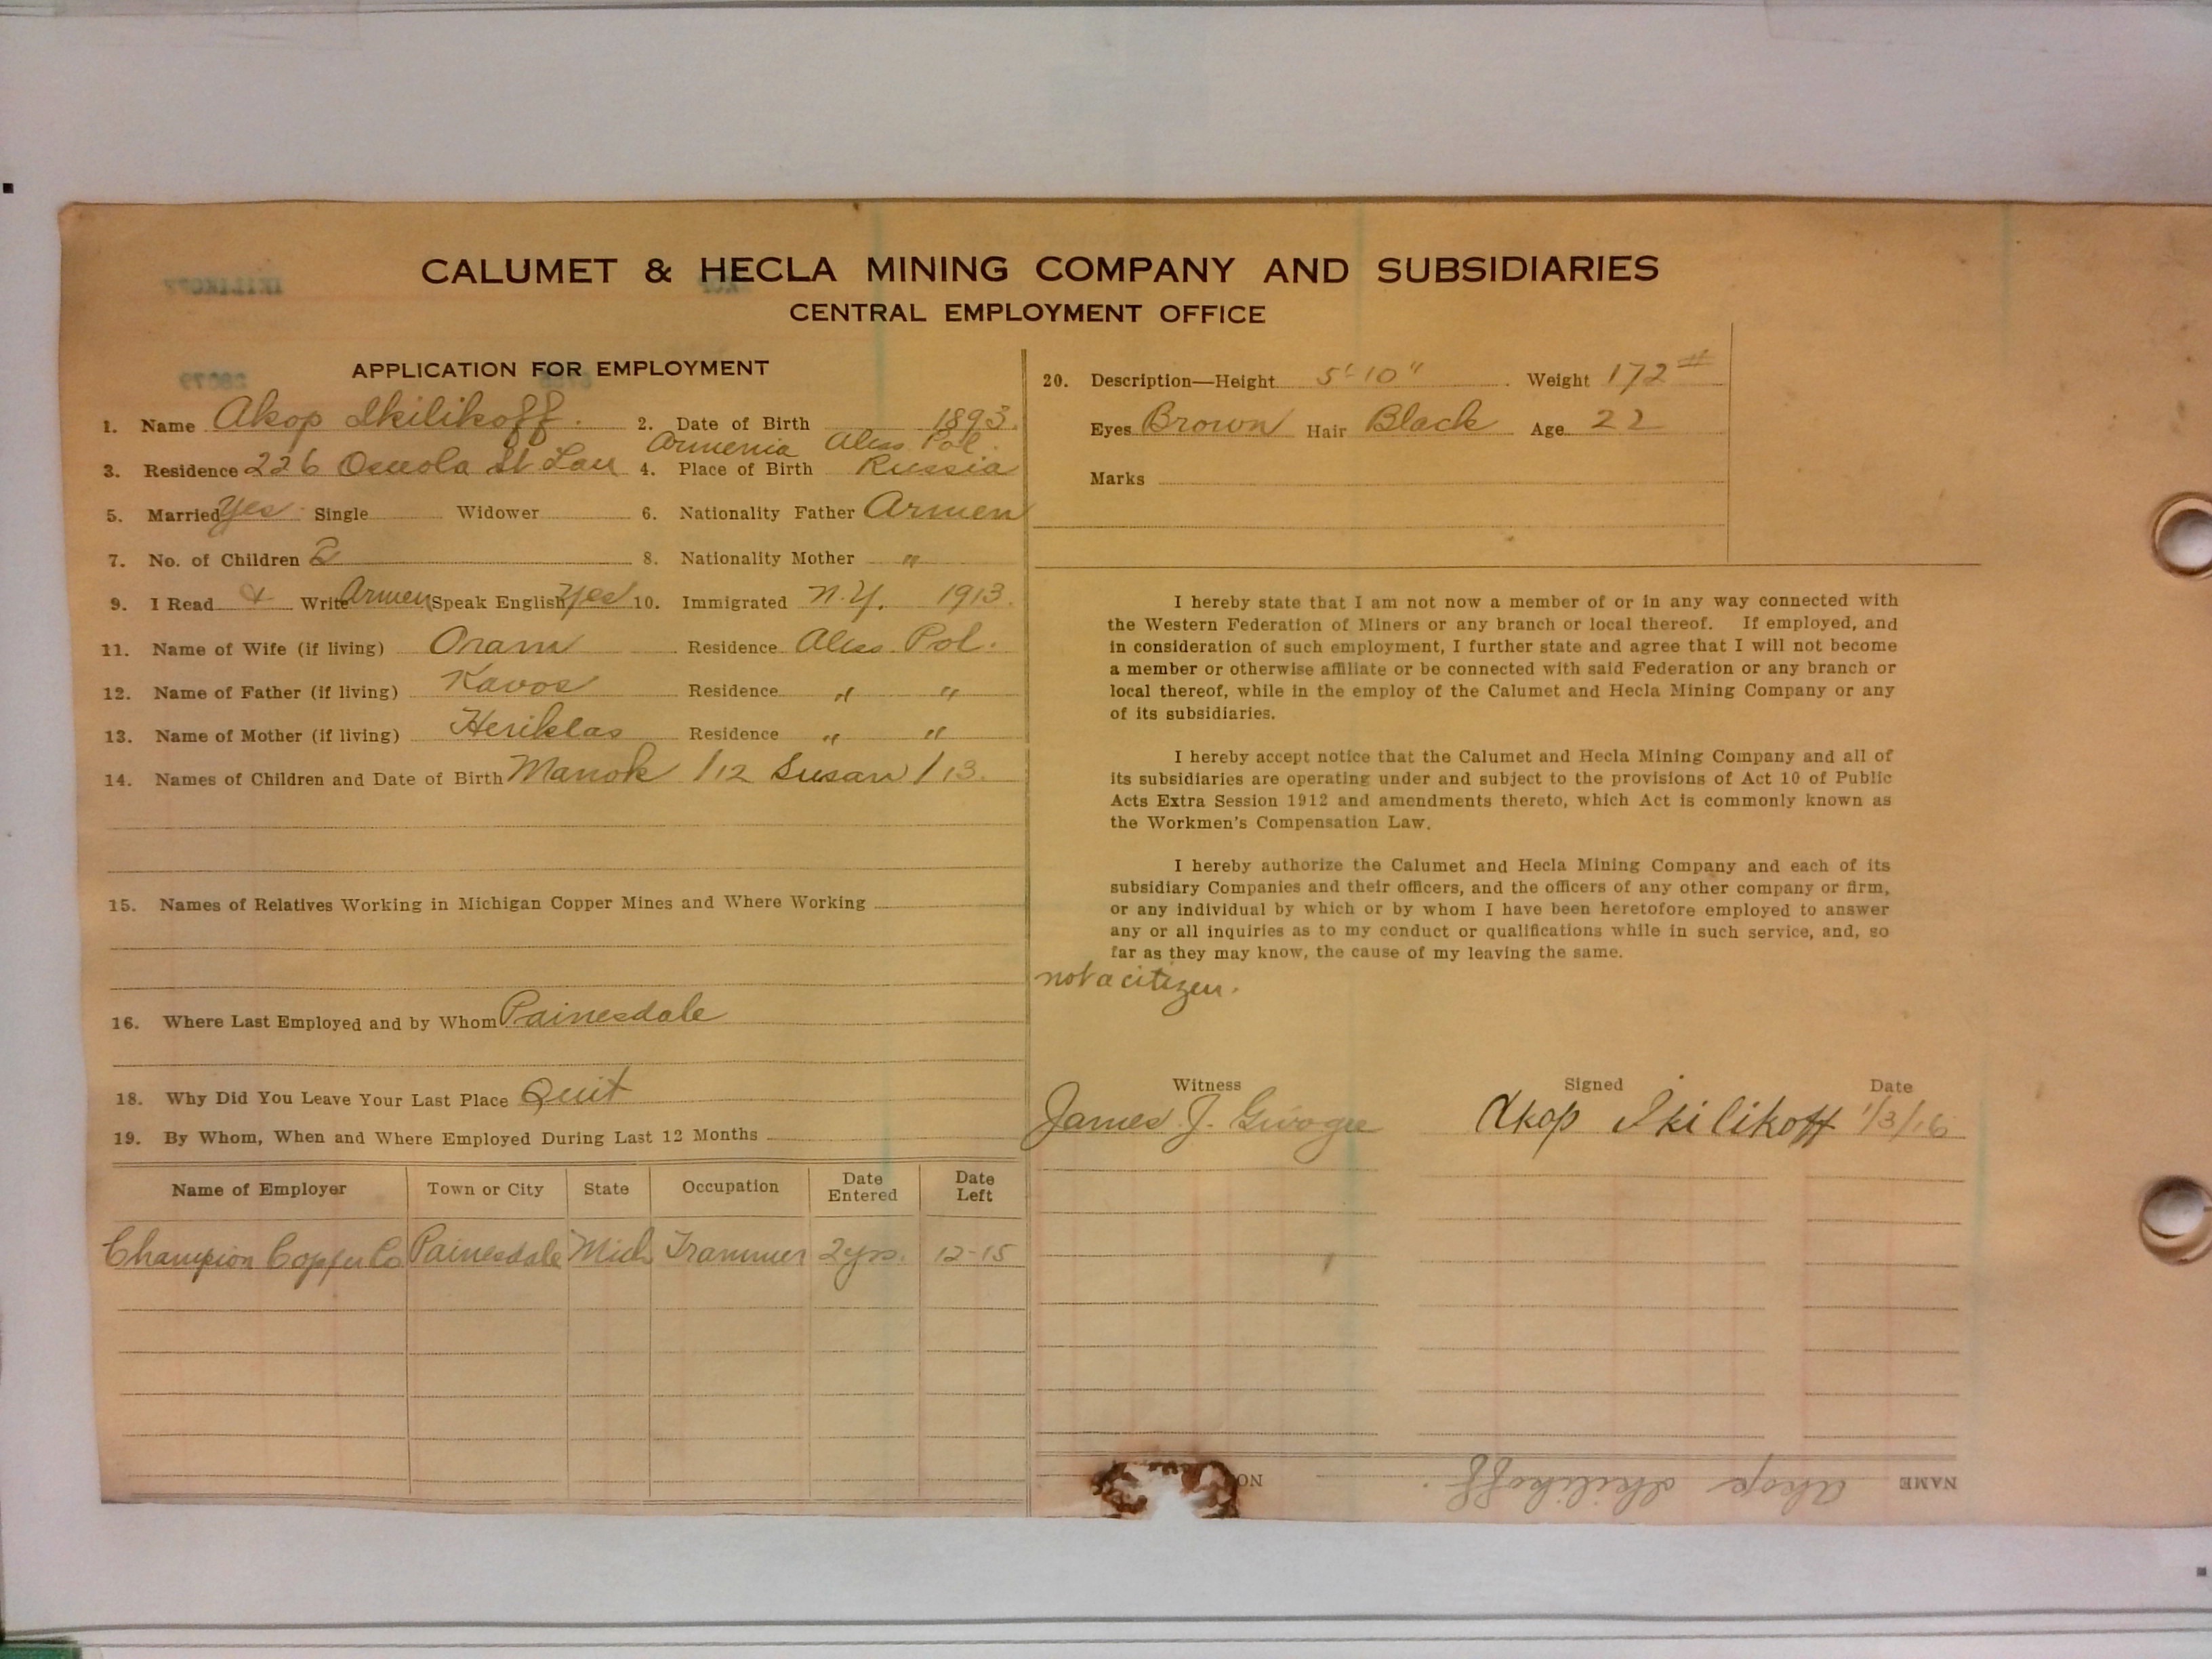 CALUMET & HECLA MINING COMPANY AND SUBSIDIARIES
CENTRAL EMPLOYMENT OFFICE
APPLICATION FOR EMPLOYMENT
1. Name Akop Ikilikoff. 2. Date of Birth 1893.
Armenia Alex. Pol.
3. Residence 226 Oseola St Lau 4. Place of Birth Russia
5. Married Yes Single Widower 6. Nationality Father Armen
7. No. of Children 2 8. Nationality Mother "
9. I Read & Write Armen Speak English Yes 10. Immigrated N.Y. 1913.
11. Name of Wife (if living) Oram Residence Alex. Pol.
12. Name of Father (if living) Kavos Residence " "
13. Name of Mother (if living) Heriklas Residence " "
14. Names of Children and Date of Birth Manok /12 Susan /13.
15. Names of Relatives Working in Michigan Copper Mines and Where Working
16. Where Last Employed and by Whom Painesdale
18. Why Did You Leave Your Last Place Quit
19. By Whom, When and Where Employed During Last 12 Months
Name of Employer Town or City State Occupation Date Entered Date Left
Champion Copper Co Painesdale Mich Trammer 2 yrs. 12-15
20. Description—Height 5'-10" Weight 172#
Eyes Brown Hair Black Age 22
Marks
I hereby state that I am not now a member of or in any way connected with
the Western Federation of Miners or any branch or local thereof. If employed, and
in consideration of such employment, I further state and agree that I will not become
a member or otherwise affiliate or be connected with said Federation or any branch or
local thereof, while in the employ of the Calumet and Hecla Mining Company or any
of its subsidiaries.
I hereby accept notice that the Calumet and Hecla Mining Company and all of
its subsidiaries are operating under and subject to the provisions of Act 10 of Public
Acts Extra Session 1912 and amendments thereto, which Act is commonly known as
the Workmen's Compensation Law.
I hereby authorize the Calumet and Hecla Mining Company and each of its
subsidiary Companies and their officers, and the officers of any other company or firm,
or any individual by which or by whom I have been heretofore employed to answer
any or all inquiries as to my conduct or qualifications while in such service, and, so
far as they may know, the cause of my leaving the same.
not a citizen.
Witness Signed Date
James J. Akop Ikilikoff 1/3/16
NAME Akop Ikilikoff. NO